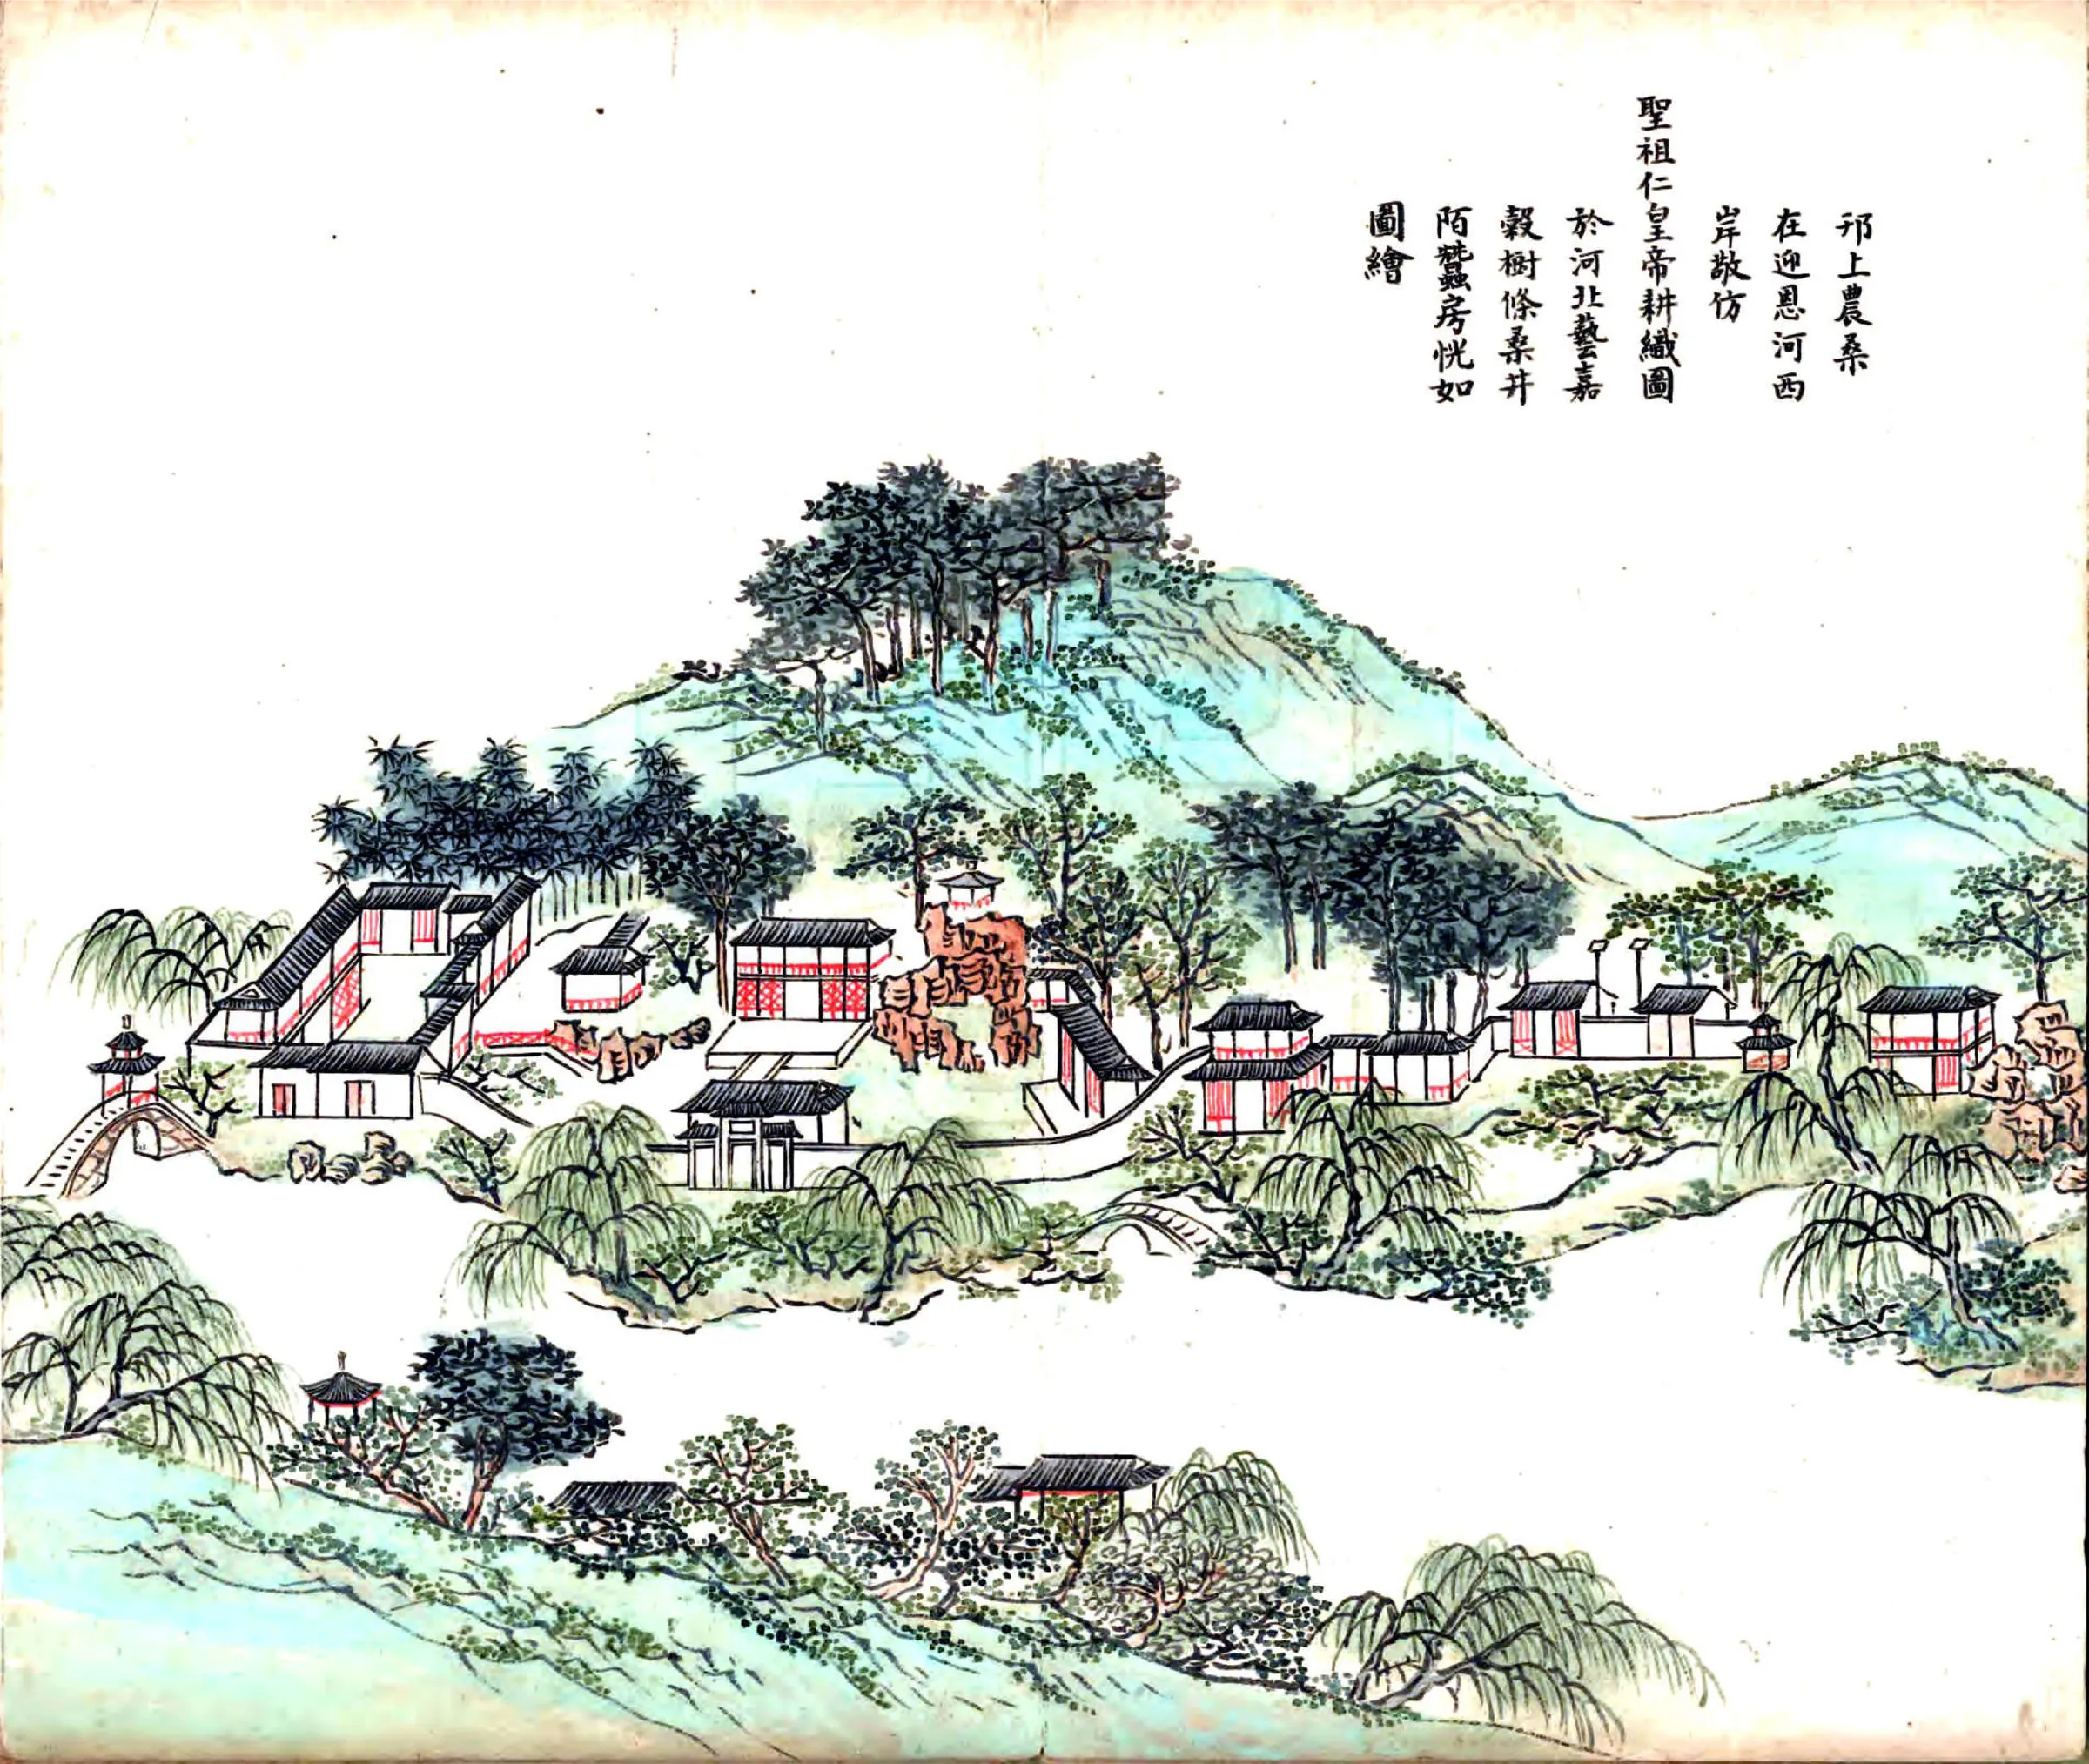 邗上農桑
在迎恩河西
岸敬仿
聖祖仁皇帝耕織圖
於河北藝嘉
穀樹條桑井
陌蠶房恍如
圖繪